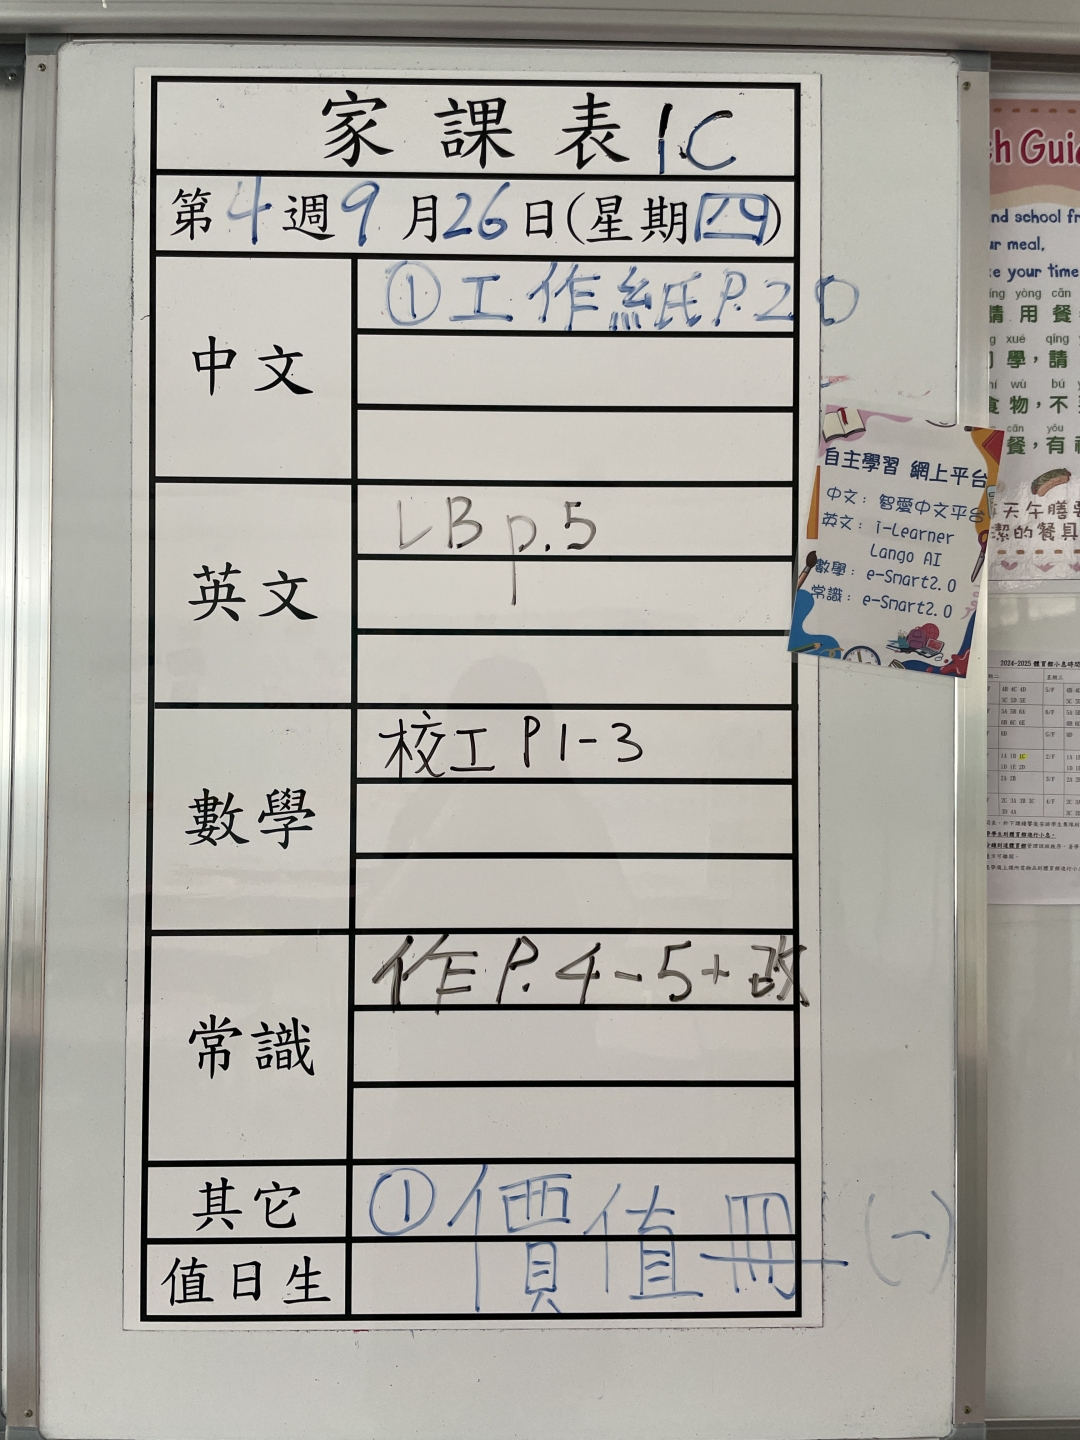 家課表 1C
第4週9月26日(星期四)
中文
①工作紙P.20
英文
LB p.5
數學
校工 P1-3
常識
作P.4-5+改
其它
①價值冊(一)
值日生
自主學習 網上平台
中文：智愛中文平台
英文：i-Learner
Lango AI
數學：e-Smart2.0
常識：e-Smart2.0
ch Guid
nd school fr
ur meal,
ke your time
yòng cān
請用餐
xué qīng
學，請
wù bú
食物，不
cān yǒu
餐，有
天午膳
潔的餐具
2024-2025